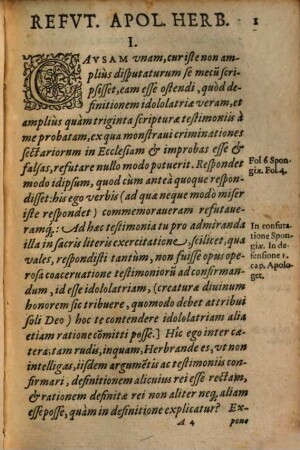 REFVT. APOL. HERB. 1
I.
CAVSAM vnam, cur iste non am-
plius disputaturum se mecũ scri-
psisset, eam esse ostendi, quòd de-
finitionem idololatriæ veram, et
amplius quàm triginta scripturæ testimoniis à
me probatam, ex qua monstraui criminationes
sectariorum in Ecclesiam & improbas esse &
falsas, refutare nullo modo potuerit. Respondet
modo idipsum, quod cùm anteà quoque respon-
disset: his ego verbis (ad quæ neque modò miser
iste respondet) commemoraueram refutaue-
ramq́;: Ad hac testimonia tu pro admiranda
illa in sacris literis exercitatione, scilicet, qua
vales, respondisti tantùm, non fuisse opus ope-
rosa coaceruatione testimoniorũ ad confirman-
dum, id esse idololatriam, (creaturæ diuinum
honorem sic tribuere, quomodo debet attribui
soli Deo) hoc te contendere idololatriam alia
etiam ratione cõmitti posse.] Hîc ego inter cæ-
tera: tam rudis, inquam, Herbrande es, vt non
intelligas, iisdem argumẽtis ac testimoniis con-
firmari, definitionem alicuius rei esse rectam,
& rationem definitæ rei non aliter neq́; aliam
esse posse, quàm in definitione explicatur? Ex-
A 4 pone
Fol 6 Spon-
giæ. Fol. 4.
In confuta-
tione Spon-
giæ. In de-
fensione 1.
cap. Apolo-
get.